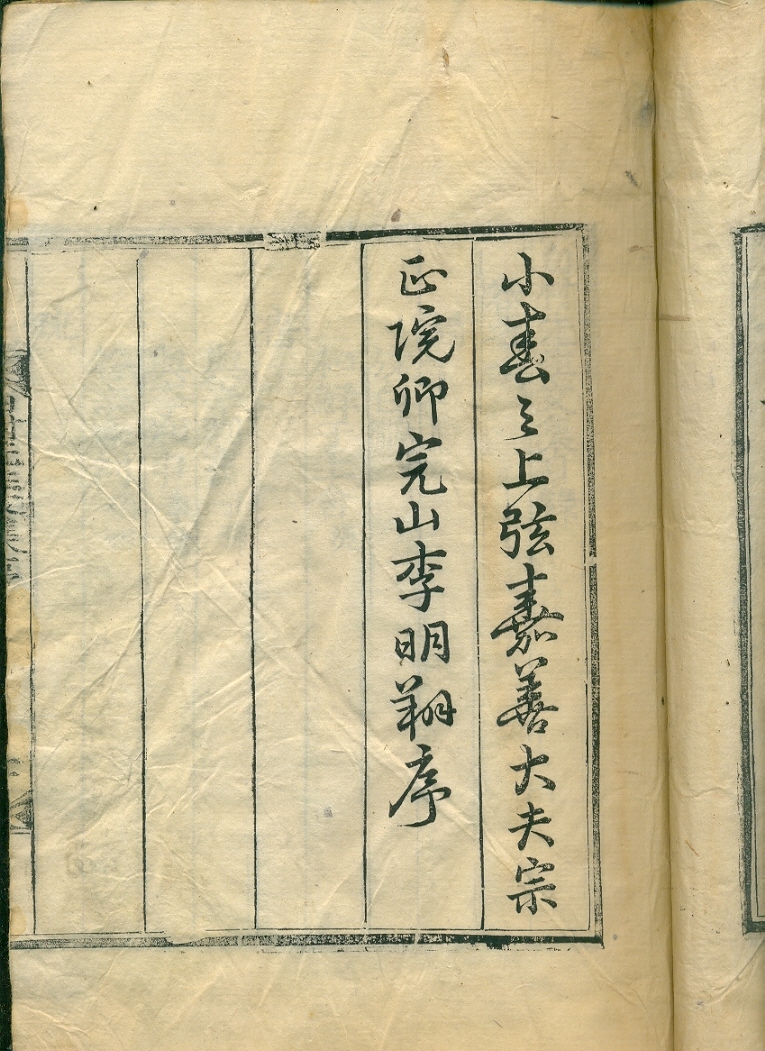 小春之上弦嘉善大夫宗
正院卿完山李明翔序